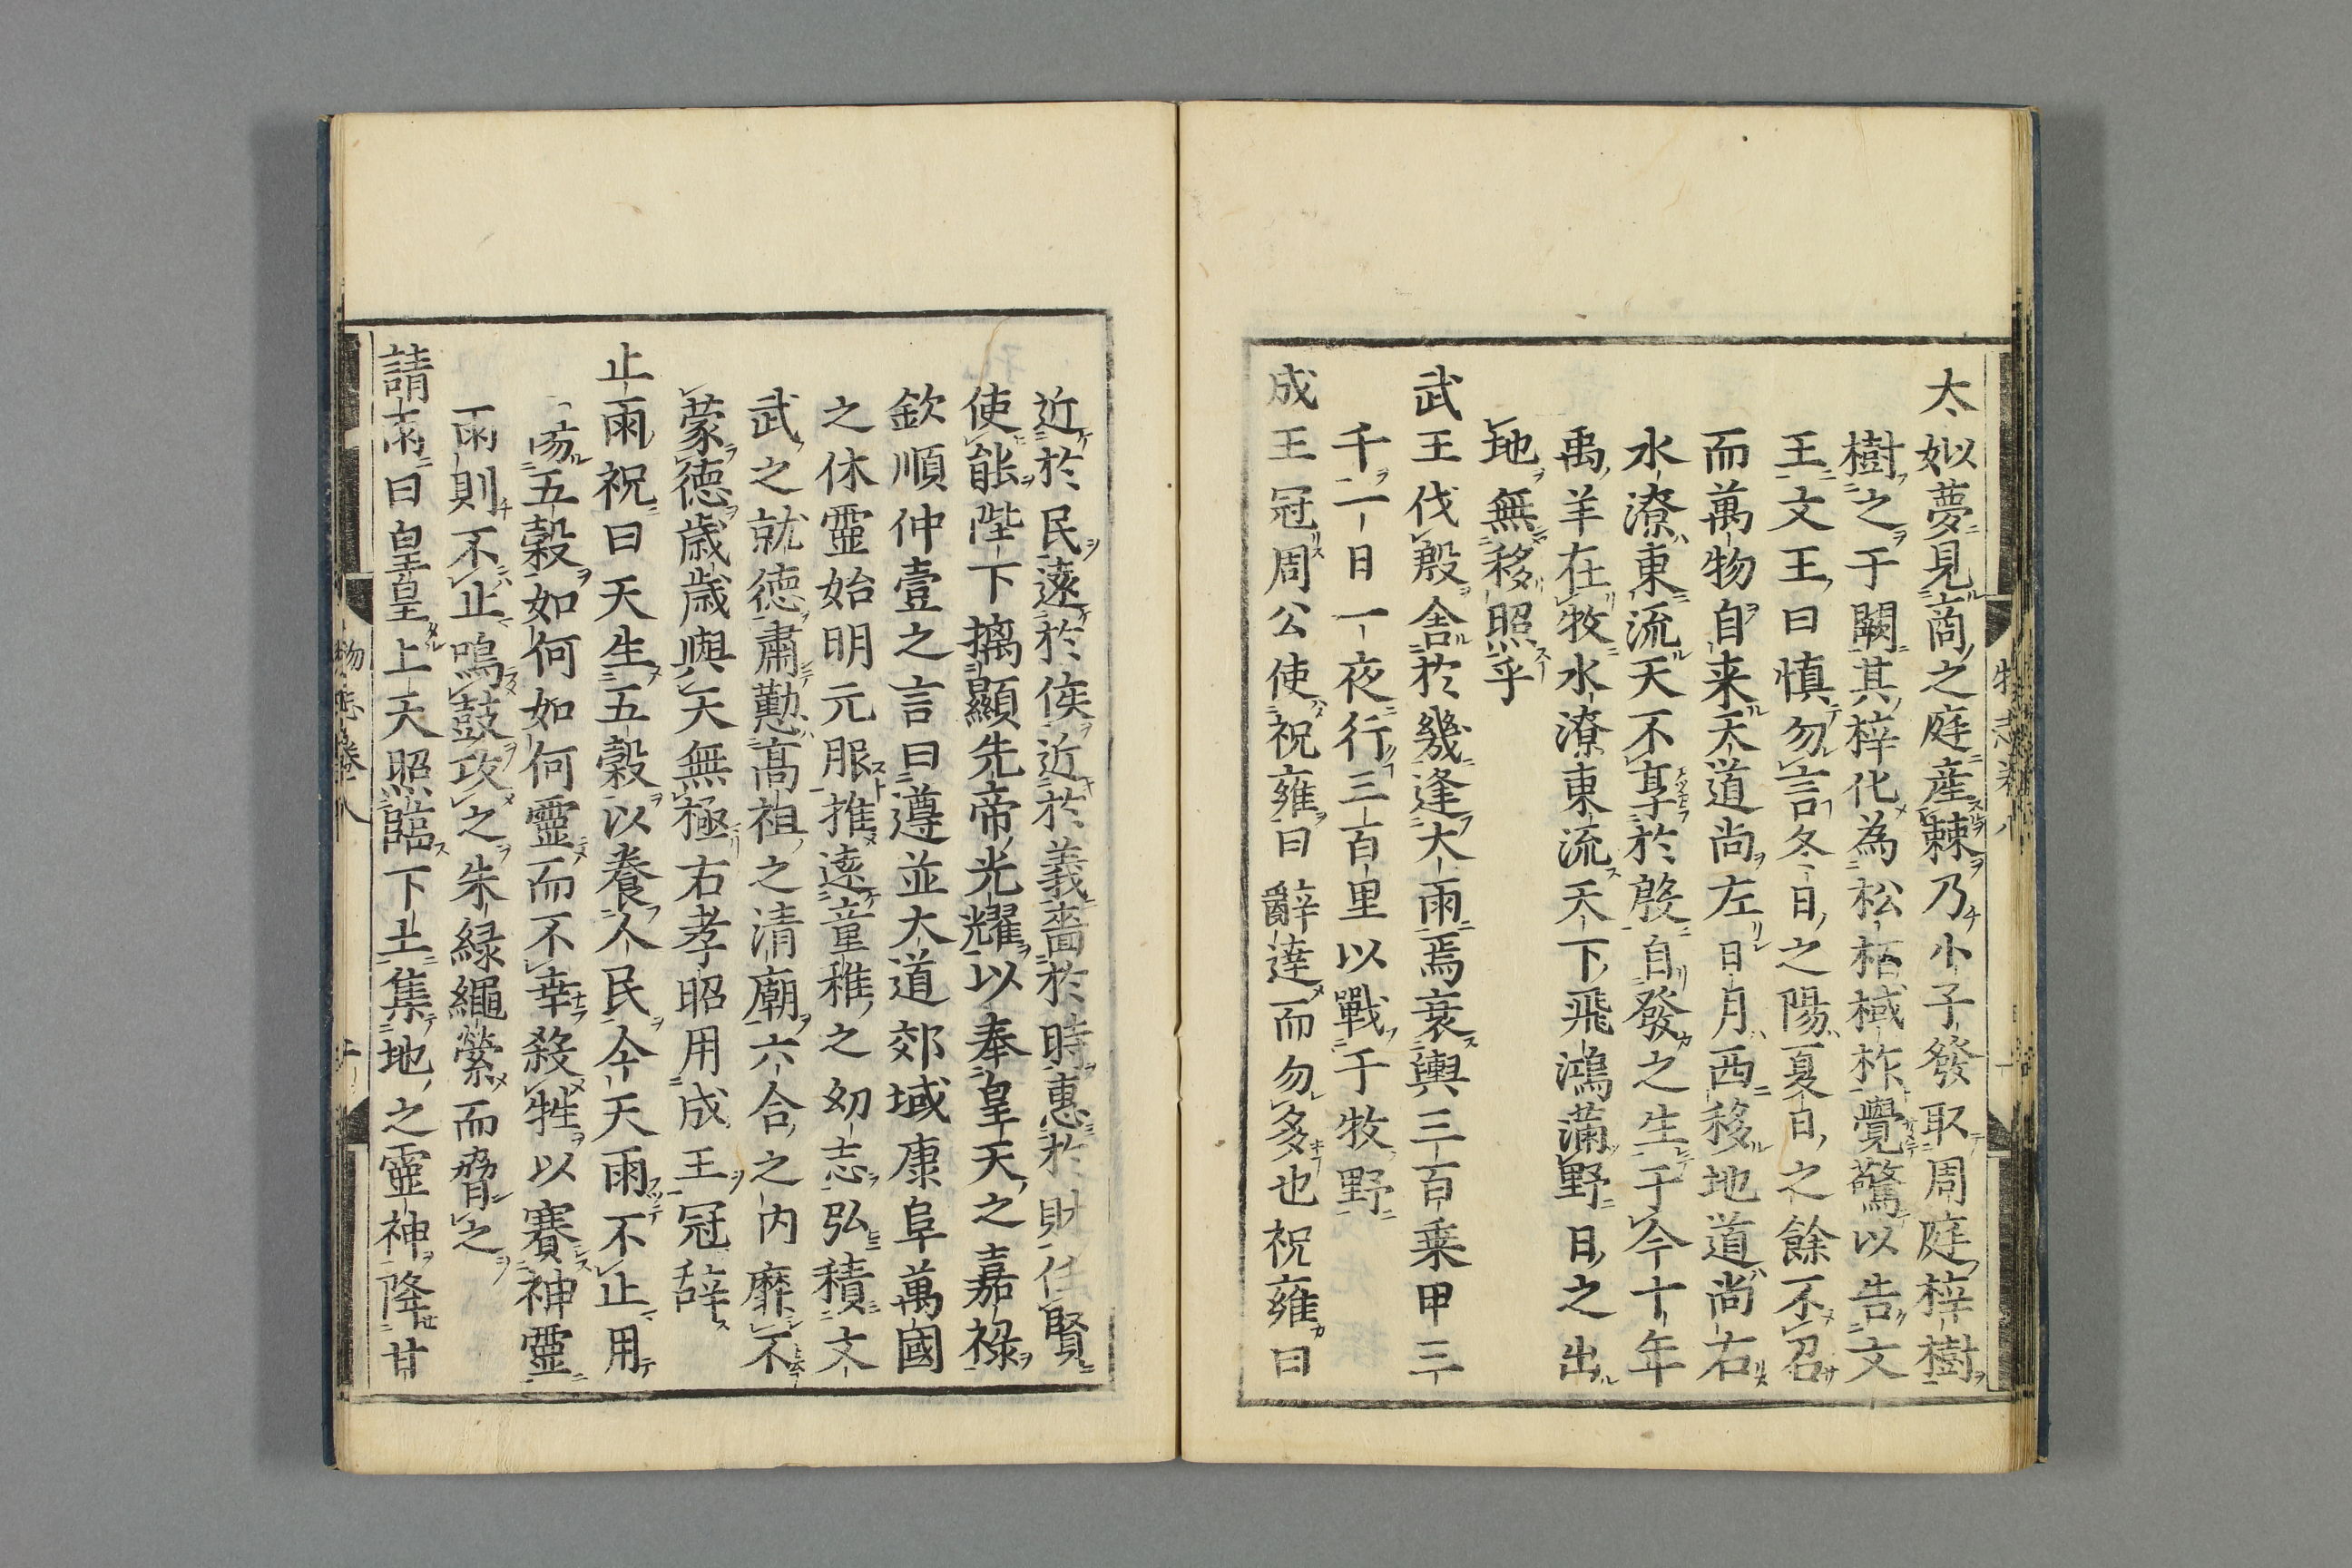 太姒夢見商之庭産棘乃小子發取周庭梓樹
樹之于闕其梓化為松栢棫柞覺驚以告文
王文王曰慎勿言冬日之陽夏日之餘不召
而萬物自来天道尚左日月西移地道尚右
水潦東流天不享於殷自發之生于今十年
禹羊在牧水潦東流天下飛鴻滿野日之出
地無移照乎
武王伐殷舎於幾逢大雨焉衰輿三百乗甲三
千一日一夜行三百里以戰于牧野
成王冠周公使祝雍曰辭達而勿多也祝雍曰
近於民遠於侫近於義嗇於時惠於財任賢
使能陛下摛顯先帝光耀以奉皇天之嘉祿
欽順仲壹之言曰遵並大道郊域康阜萬國
之休靈始明元服推遠童稚之幼志弘積文
武之就徳肅懃高祖之清廟六合之内靡不
蒙徳歳歳與天無極右孝昭用成王冠辞
止雨祝曰天生五穀以養人民今天雨不止用
傷五穀如何如何靈而不幸殺牲以賽神靈
雨則不止鳴鼓攻之朱緑繩縈而脅之
請雨曰皇皇上天照臨下土集地之靈神降甘
物志卷八